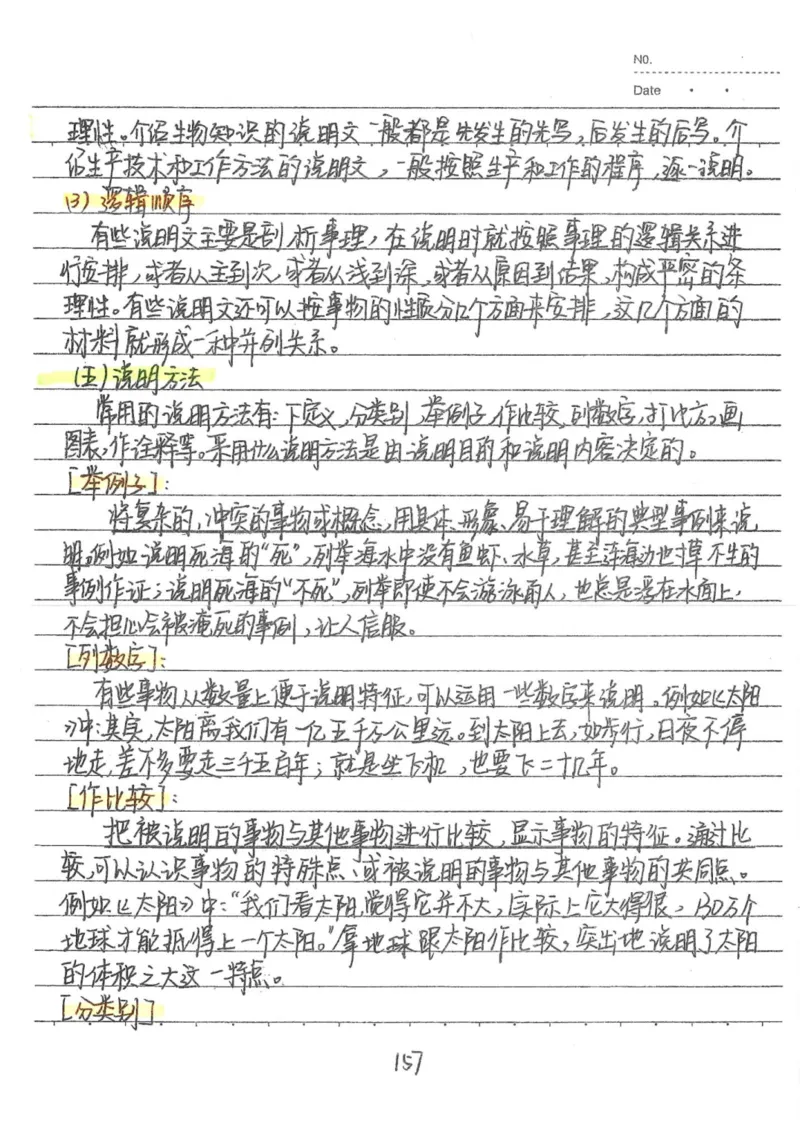 NO.
Date
理性。介绍生物知识的说明文一般都是先发生的先写,后发生的后写。介
绍生产技术和工作方法的说明文,一般按照生产和工作的程序,逐一说明。
(3)逻辑顺序
有些说明文主要是剖析事理,在说明时就按照事理的逻辑关系进
行安排,或者从主到次,或者从浅到深,或者从原因到结果,构成严密的条
理性。有些说明文还可以按事物的性质分几个方面来安排,这几个方面的
材料就形成一种并列关系。
(五)说明方法
常用的说明方法有:下定义,分类别,举例子,作比较,列数字,打比方,画
图表,作诠释等。采用什么说明方法是由说明目的和说明内容决定的。
[举例子]:
将复杂的,冲突的事物或概念,用具体、形象、易于理解的典型事例来说
明。例如说明死海的“死”,列举海水中没有鱼虾、水草,甚至连海边也寸草不生的
事例作证;说明死海的“不死”,列举即使不会游泳的人,也总是浮在水面上,
不会担心会被淹死的事例,让人信服。
[列数字]:
有些事物从数量上便于说明特征,可以运用一些数字来说明。例如《太阳
》中:其实,太阳离我们有一亿五千万公里远。到太阳上去,如步行,日夜不停
地走,差不多要走三千五百年;就是坐飞机,也要飞二十几年。
[作比较]:
把被说明的事物与其他事物进行比较,显示事物的特征。通过比
较,可以认识事物的特殊点、或被说明的事物与其他事物的共同点。
例如《太阳》中:“我们看太阳,觉得它并不大,实际上它大得很,130万个
地球才能抵得上一个太阳。”拿地球跟太阳作比较,突出地说明了太阳
的体积之大这一特点。
[分类别]
157